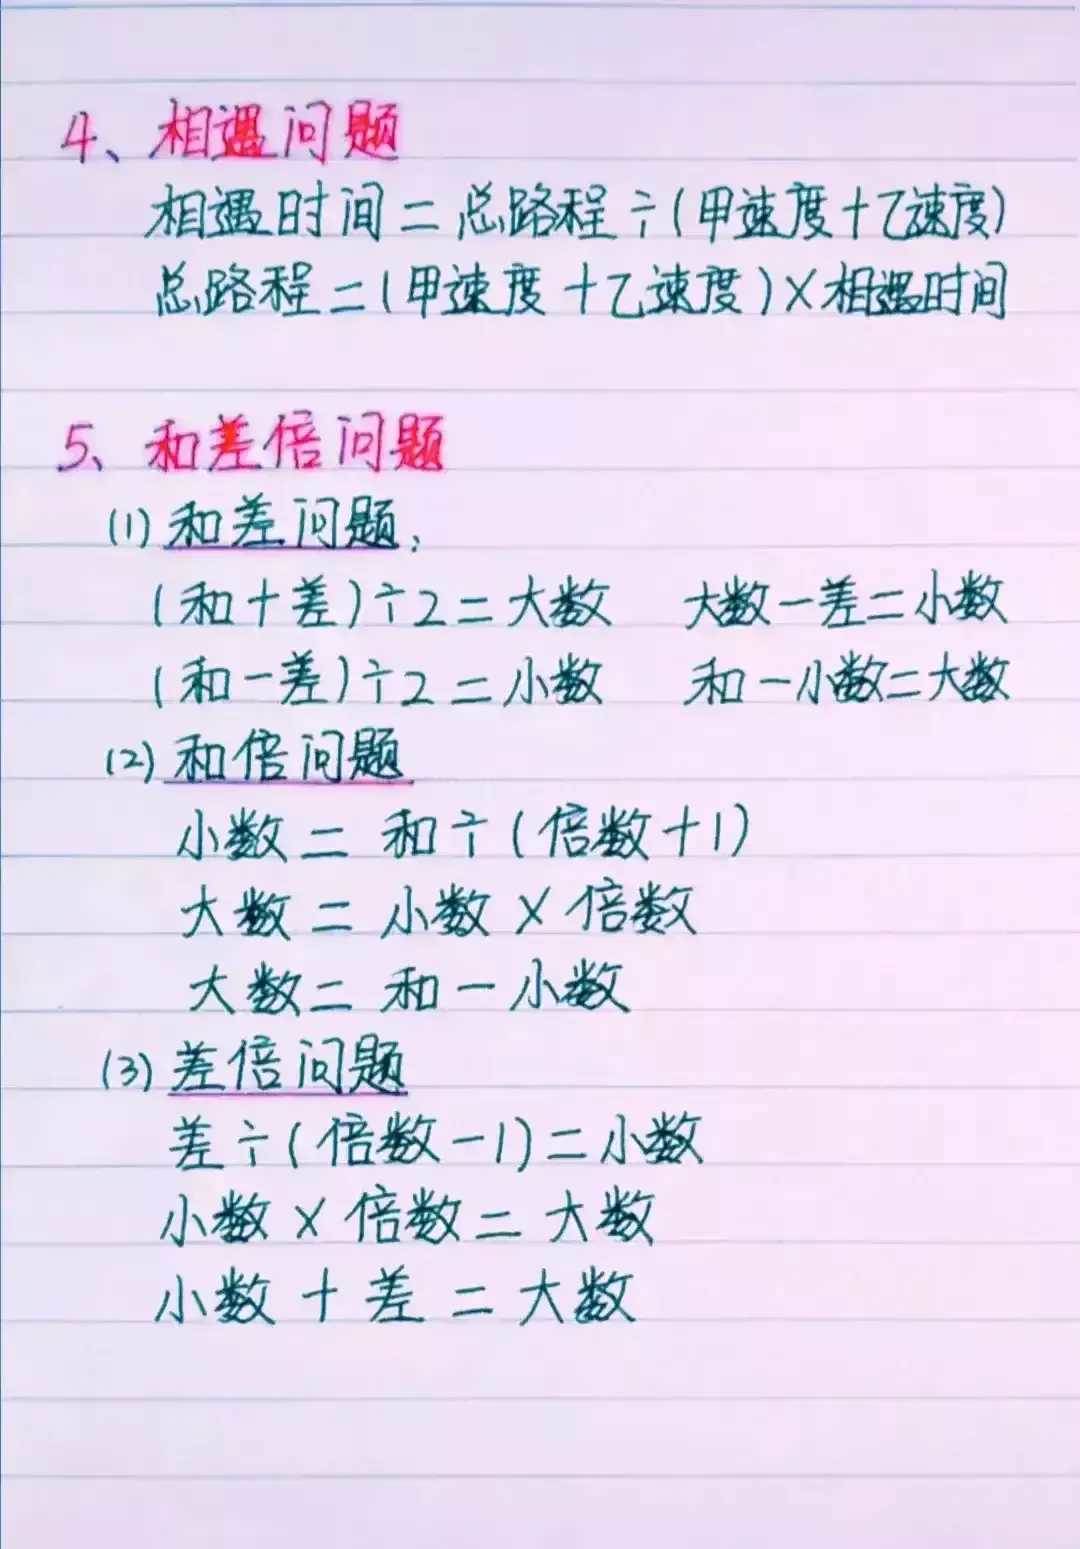 4、相遇问题
相遇时间=总路程÷(甲速度+乙速度)
总路程=(甲速度+乙速度)×相遇时间
5、和差倍问题
(1)和差问题,
(和+差)÷2=大数 大数-差=小数
(和-差)÷2=小数 和-小数=大数
(2)和倍问题
小数=和÷(倍数+1)
大数=小数×倍数
大数=和-小数
(3)差倍问题
差÷(倍数-1)=小数
小数×倍数=大数
小数+差=大数